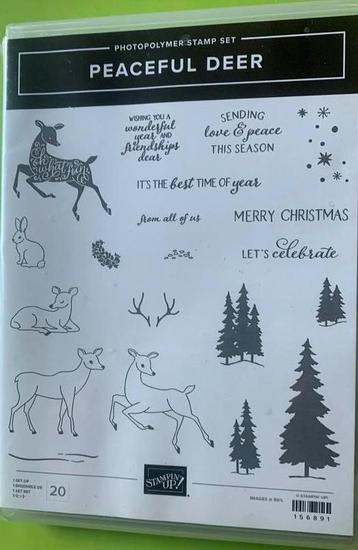 PHOTOPOLYMER STAMP SET
PEACEFUL DEER
WISHING YOU A
wonderful
year AND
friendships
dear
SENDING
love & peace
THIS SEASON
Oh what fun
IT'S THE best TIME OF year
from all of us
MERRY CHRISTMAS
LET'S celebrate
20
STAMPIN' UP!
IMAGES @ 50%
© STAMPIN' UP!
156891